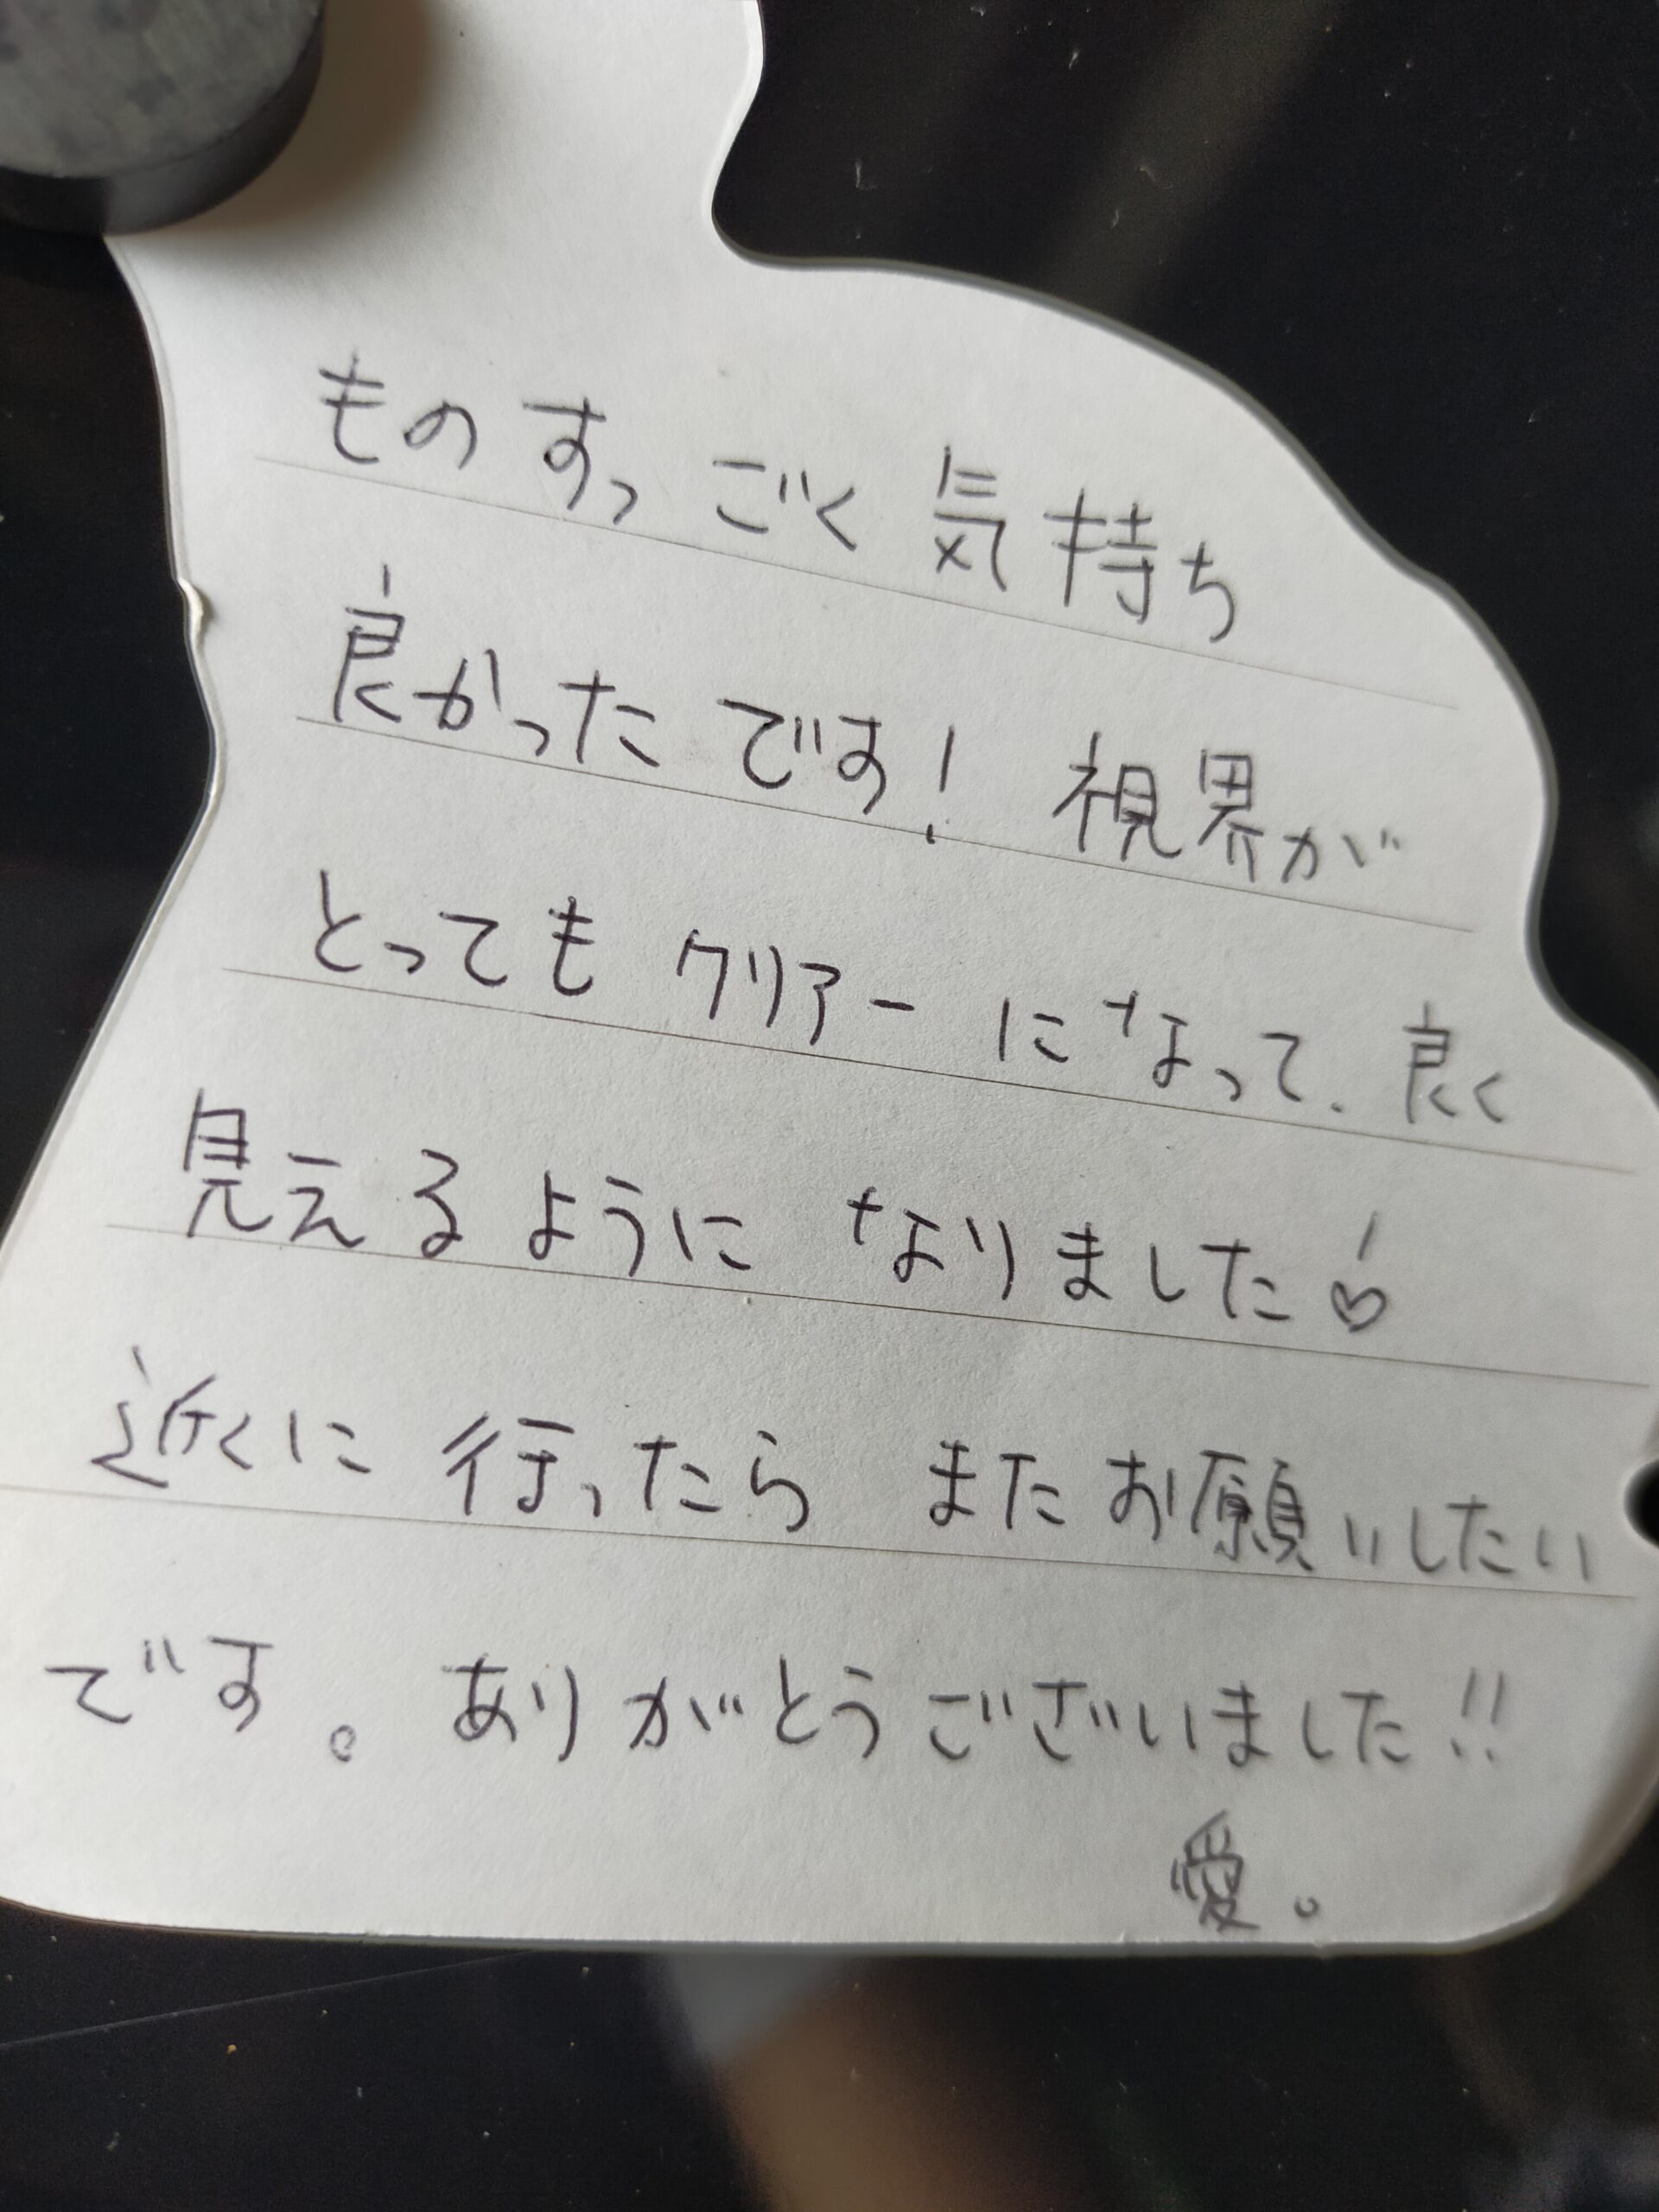 ものすっごく気持ち
良かったです! 視界が
とってもクリアーになって、良く
見えるようになりました♡
近くに行ったら またお願いしたい
です。ありがとうございました!!
愛。